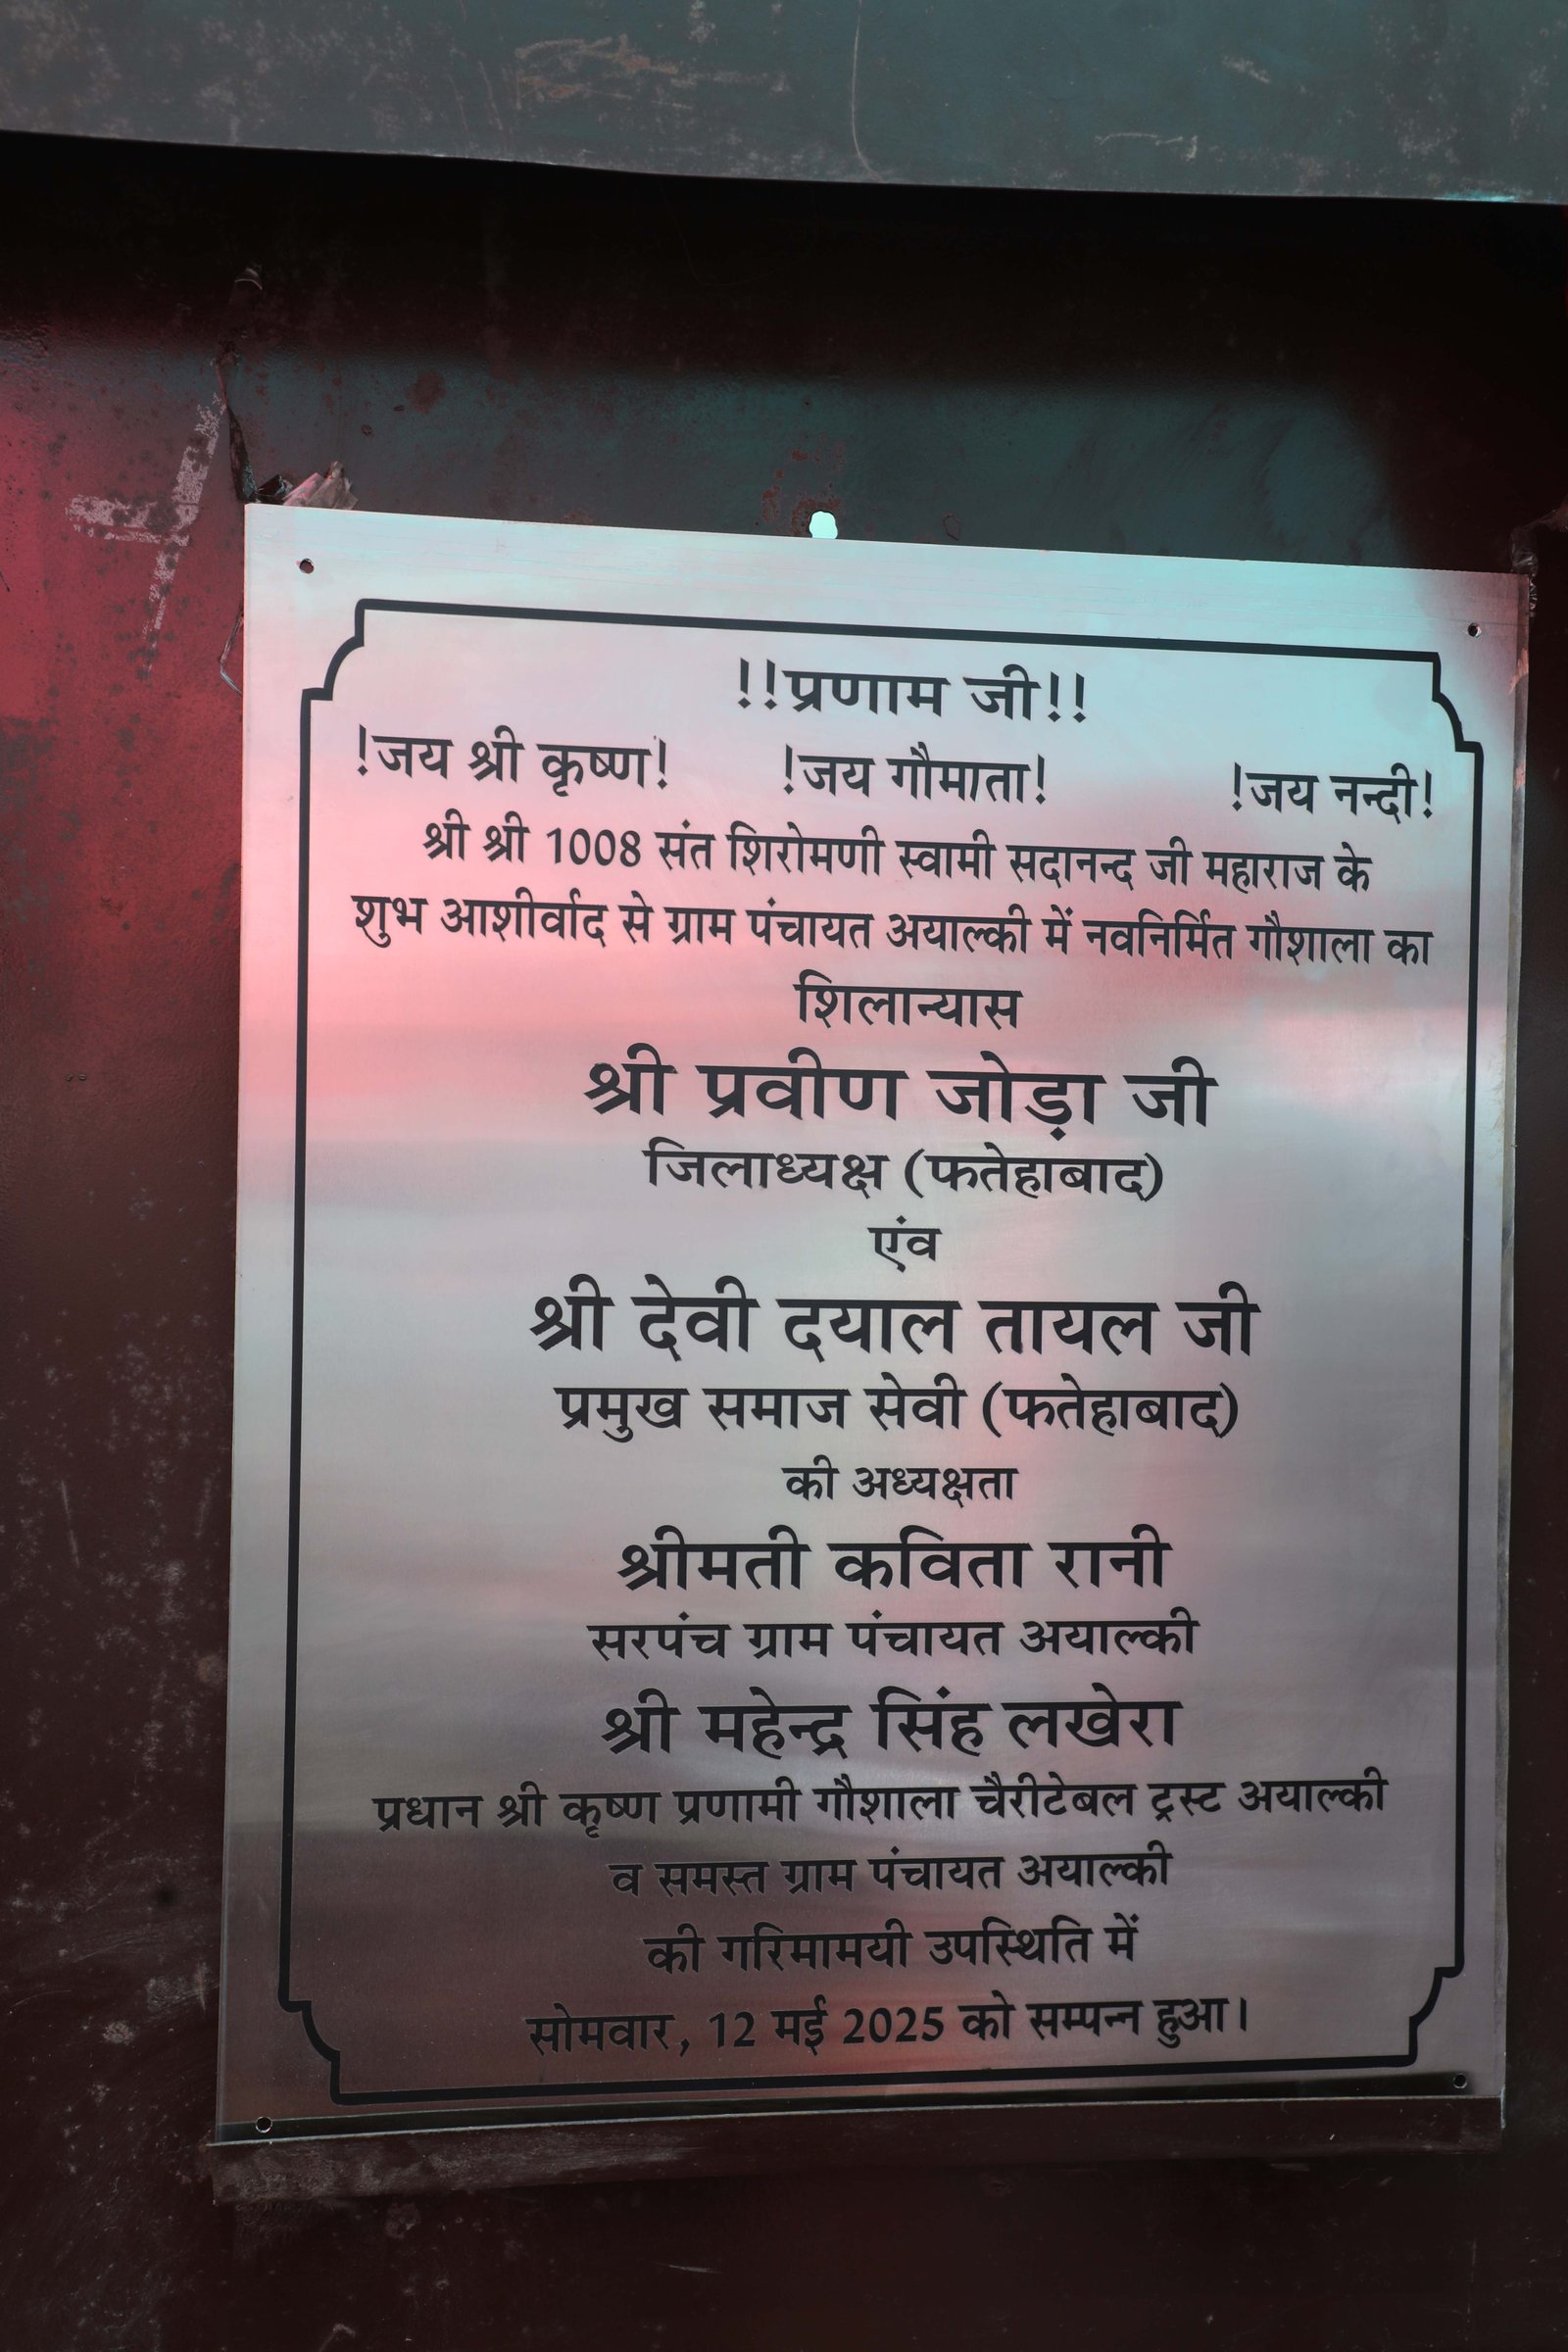 !!प्रणाम जी!!
!जय श्री कृष्ण! !जय गौमाता! !जय नन्दी!
श्री श्री 1008 संत शिरोमणी स्वामी सदानन्द जी महाराज के
शुभ आशीर्वाद से ग्राम पंचायत अयाल्की में नवनिर्मित गौशाला का
शिलान्यास
श्री प्रवीण जोड़ा जी
जिलाध्यक्ष (फतेहाबाद)
एंव
श्री देवी दयाल तायल जी
प्रमुख समाज सेवी (फतेहाबाद)
की अध्यक्षता
श्रीमती कविता रानी
सरपंच ग्राम पंचायत अयाल्की
श्री महेन्द्र सिंह लखेरा
प्रधान श्री कृष्ण प्रणामी गौशाला चैरीटेबल ट्रस्ट अयाल्की
व समस्त ग्राम पंचायत अयाल्की
की गरिमामयी उपस्थिति में
सोमवार, 12 मई 2025 को सम्पन्न हुआ।